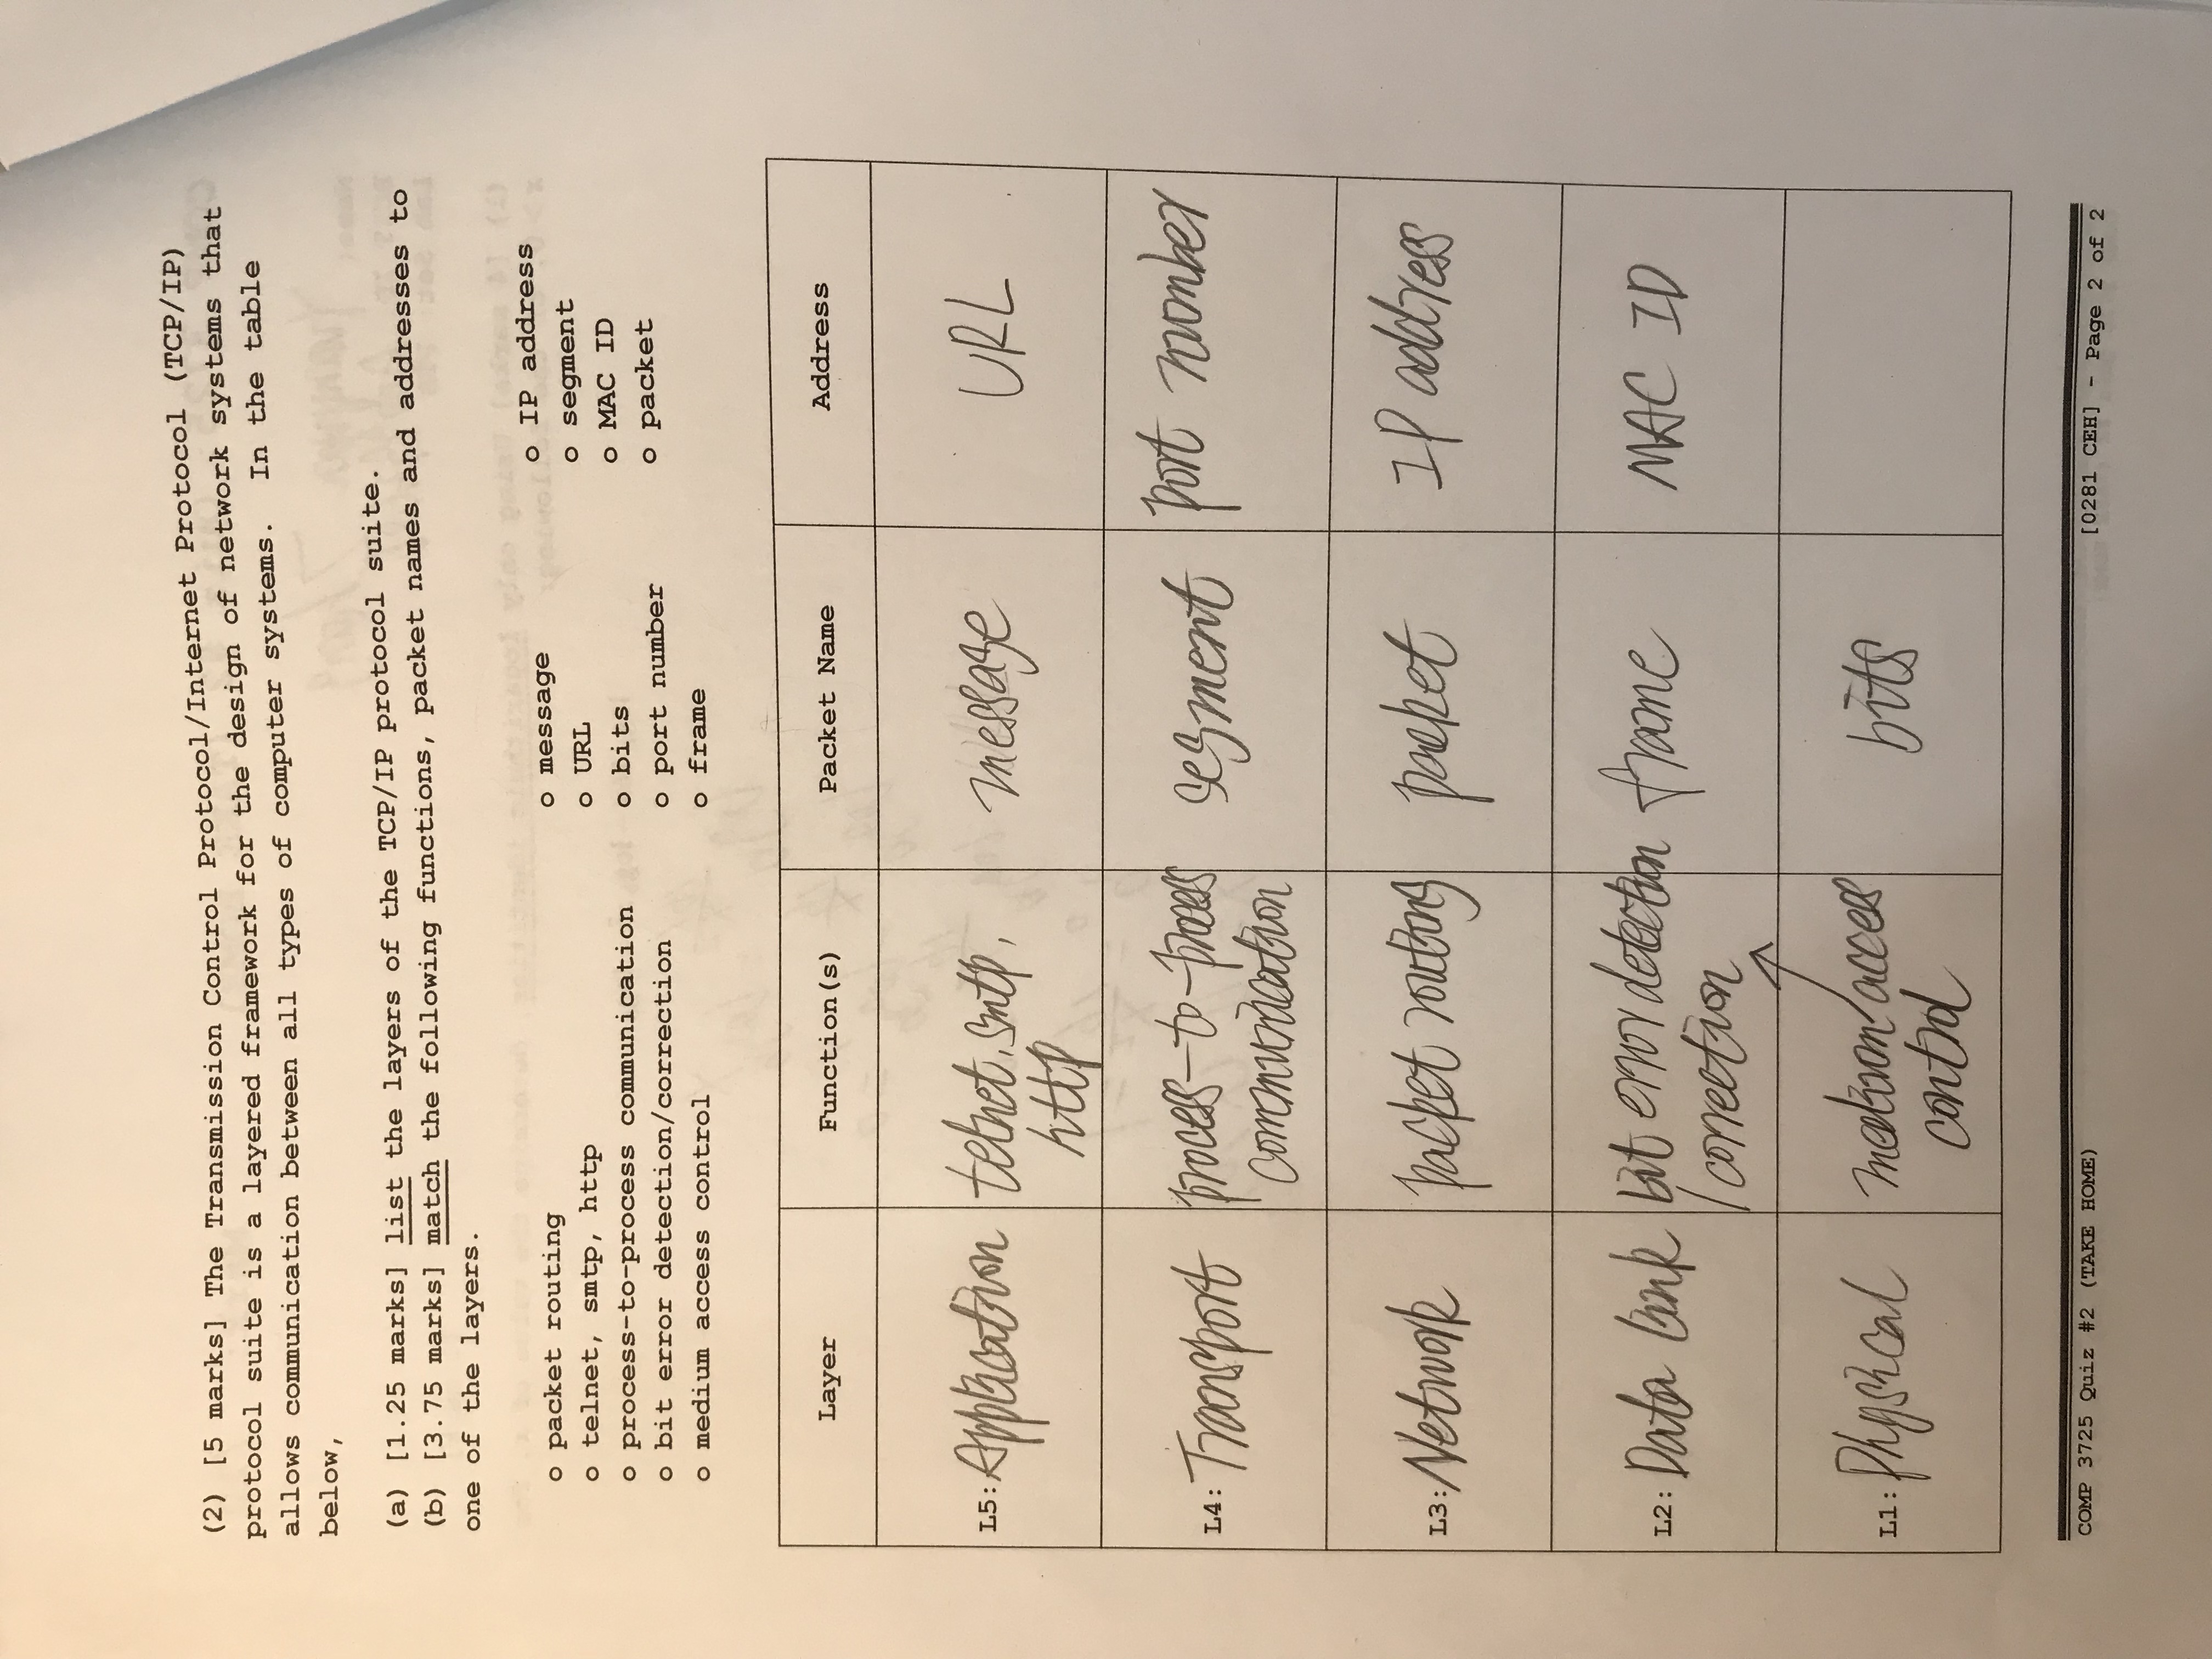 (2) [5 marks] The Transmission Control Protocol/Internet Protocol (TCP/IP)
protocol suite is a layered framework for the design of network systems that
allows communication between all types of computer systems. In the table
below,
(a) [1.25 marks] list the layers of the TCP/IP protocol suite.
(b) [3.75 marks] match the following functions, packet names and addresses to
one of the layers.
o packet routing
o telnet, smtp, http
o process-to-process communication
o bit error detection/correction
o medium access control
o message
o URL
o bits
o port number
o frame
o IP address
o segment
o MAC ID
o packet
Layer Function(s) Packet Name Address
L5: Application telnet, smtp, message URL
http
L4: Transport process-to-process segment port number
communication
L3: Network packet routing packet IP address
L2: Data link bit error detection frame MAC ID
/correction
L1: Physical medium access bits
control
COMP 3725 Quiz #2 (TAKE HOME) [0281 CEH] - Page 2 of 2